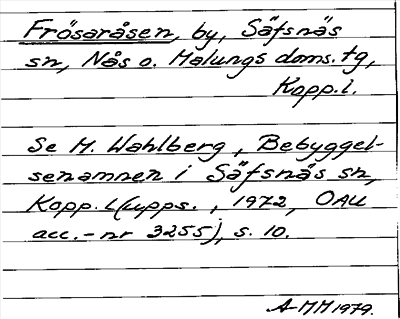 Frösaråsen, by, Säfsnäs
sn, Nås o. Malungs doms. tg,
Kopp.l.
Se M. Wahlberg, Bebyggel-
senamnen i Säfsnäs sn,
Kopp. l (upps., 1972, OAU
acc.-nr 3255), s. 10.
AMM 1979.